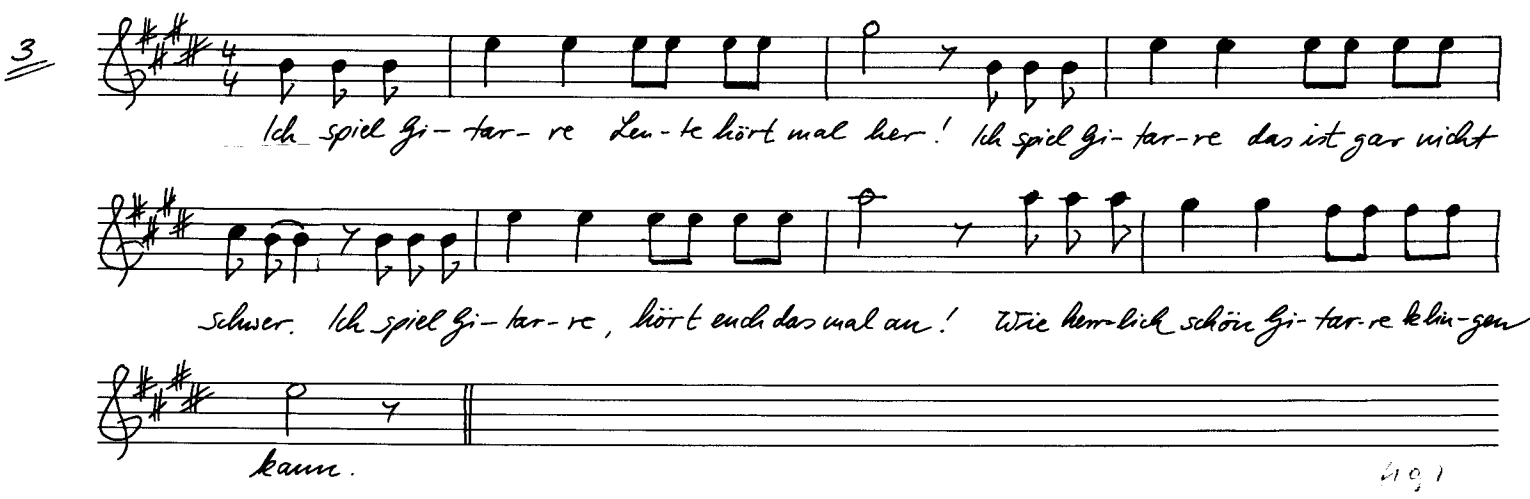 3
4
4
Ich spiel Gi-tar-re Leu-te hört mal her! Ich spiel Gi-tar-re das ist gar nicht
schwer. Ich spiel Gi-tar-re, hört euch das mal an! Wie herr-lich schön Gi-tar-re klin-gen
kann.